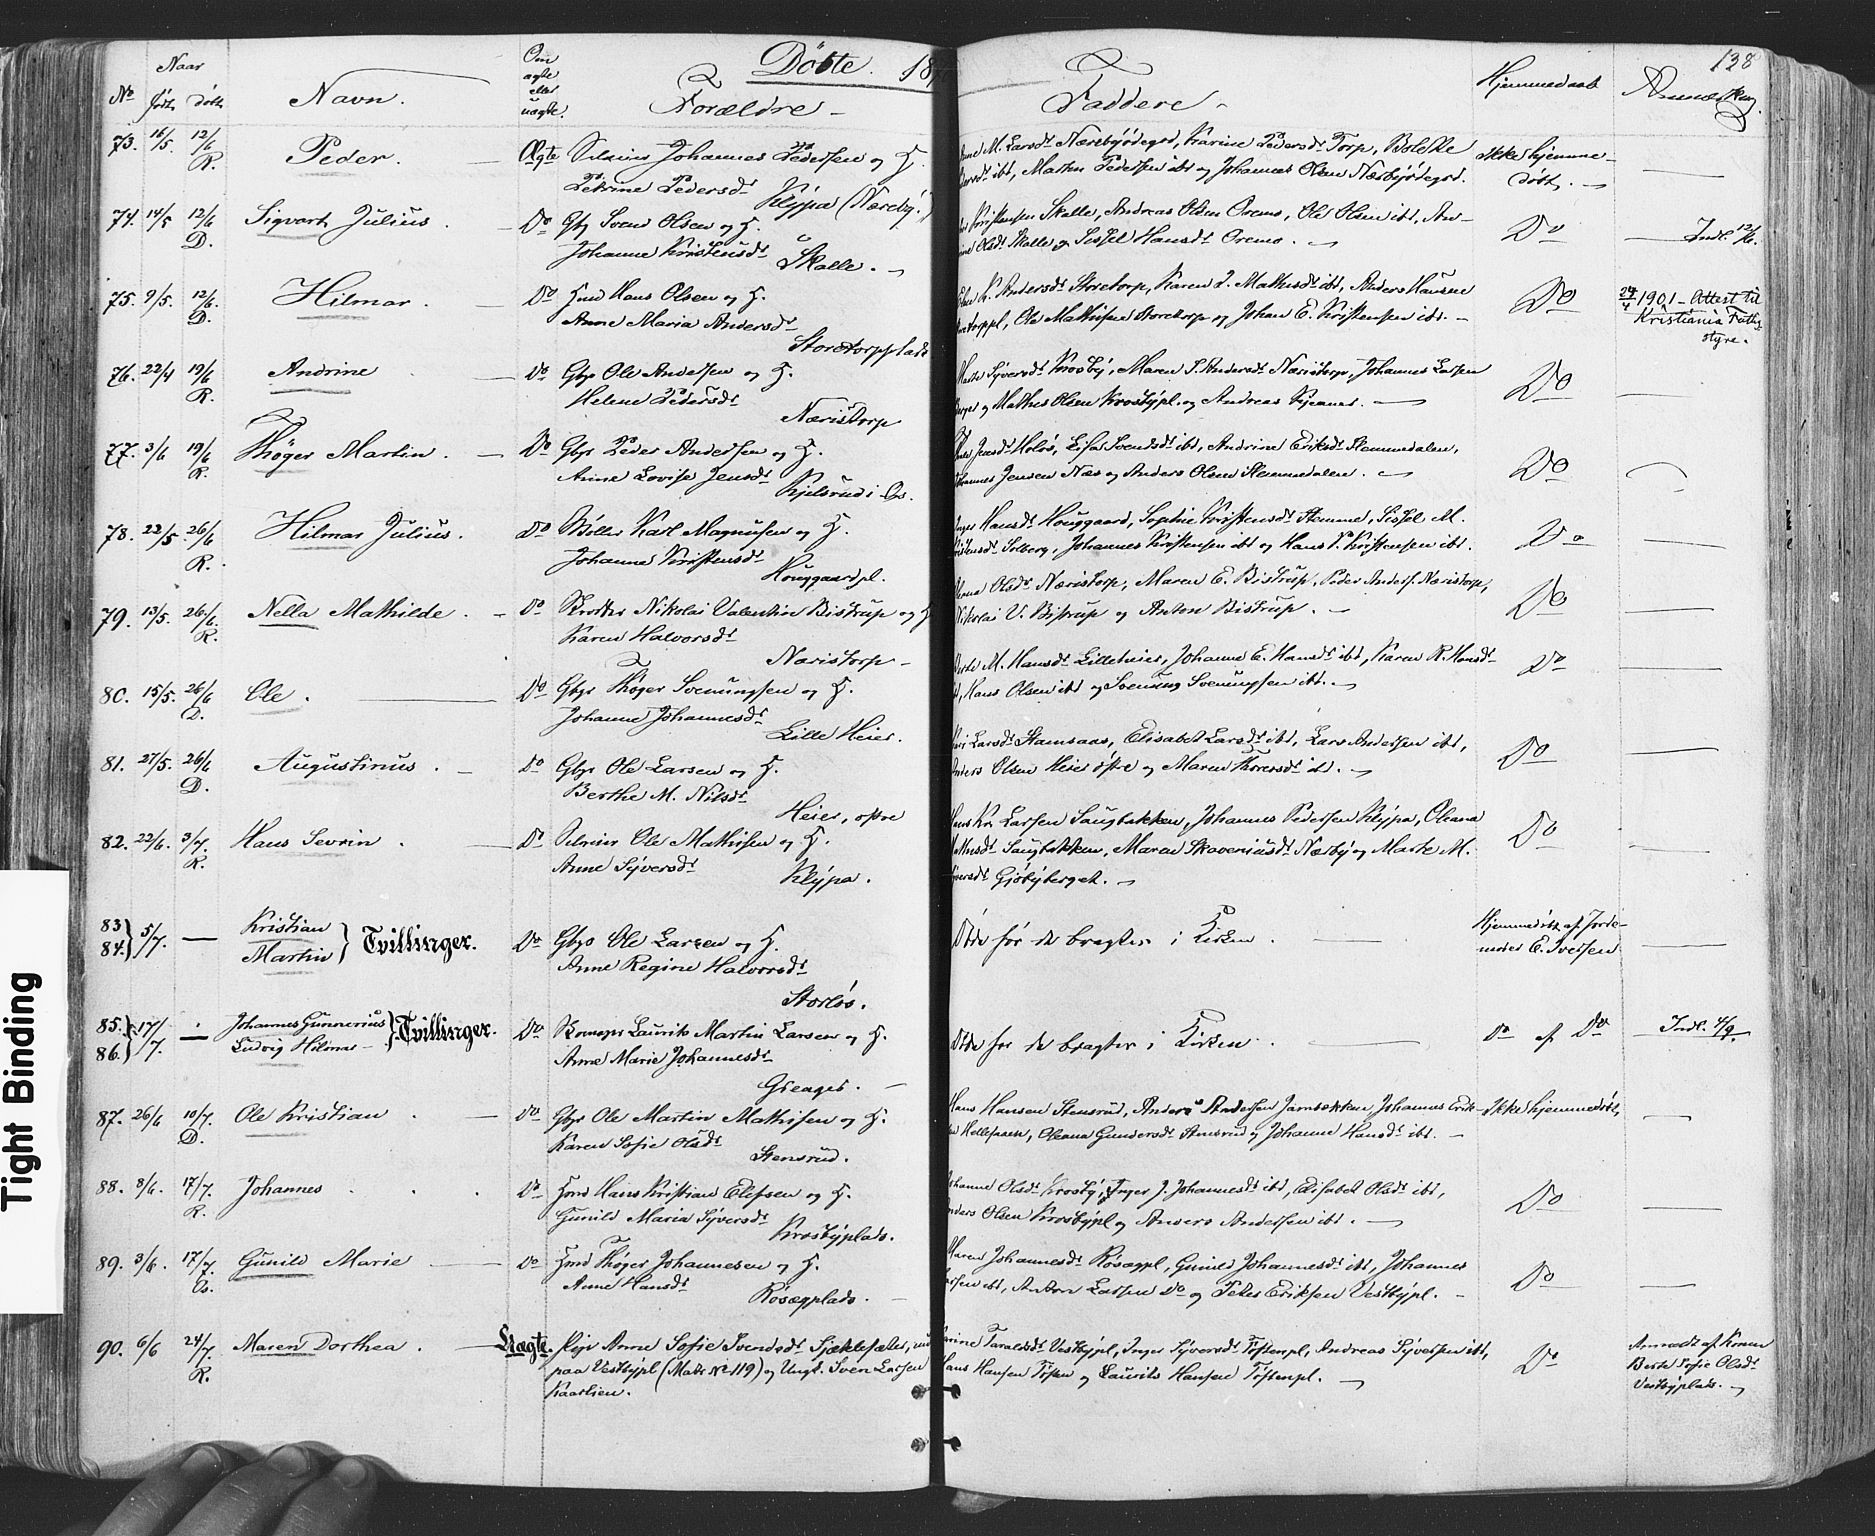 Døbte. 18
138
No
Naar
født døbt
Navn.
Om ægte eller uægte.
Forældre
Faddere
Hjemmedøbt
Anmærkng.
73. 16/5. 12/6 R. Peder. Ægte Johannes Pedersen og H.
Petrine Pedersdr Klypa (Næsby.)
M. Larsdr Næsebyødegrd, Karine Pedersdr Torp, Bolette
ibt, Mathis Pedersen ibt og Johannes Olsen Næsbyødegrd.
Ikke hjemme-
døbt.
74. 14/5 12/6 D. Sigvart Julius. Do Gbr Svend Olsen og H.
Johanne Kristensdr Skolle.
Kristensen Skolle, Andreas Olsen Oremo, Ole Olsen ibt, An-
Olsdr Skolle og Sissel Hansdr Oremo.
Do
Indl. 12/6.
75. 9/5. 12/6. D. Hilmar. Do Hmd Hans Olsen og H.
Anne Maria Andersdr
Storetorpplads
K. Andersdr Storetorp, Karen L. Mathisdr ibt, Anders Hansen
Ole Mathisen Storetorp og Johan E. Kristensen ibt.
Do
29/4 1901 - Attest til
Kristiania Fattig-
styre.
76. 22/4 19/6 R. Andrine Do Gbr Ole Andersen og H.
Helene Pedersdr
Næristorp
Syversdr Krosby, Maren S. Andersdr Næristorp, Johannes Larsen
og Mathis Olsen Krosbypl. og Andreas
Do
77. 3/6 19/6 R. Thøger Martin. Do Gbr Peder Andersen og H.
Anne Lovise Jensdr Kjelsrud i Os.
Jensdr Holøs, Lisa Svendsdr ibt, Andrine Eriksdr Stemmedalen,
Johannes Jensen Næs og Anders Olsen Stemmedalen.
Do
78. 22/5. 26/6 R. Hilmar Julius. Do Møller Karl Magnusen og H.
Johanne Kristensdr
Houggaardpl.
Inger Hansdr Houggaard, Sophie Kristensdr Stemme, Sissel M.
Kristensdr Solberg, Johannes Kristensen ibt og Hans P. Kristensen ibt.
Do
79. 13/5. 26/6. R. Nella Mathilde. Do Nikolai Valentin Bistrup og H
Karen Halvorsdr
Næristorp
Olsdr Næristorp, Maren E. Bistrup, Peder Anders. Næristorp,
Nikolai V. Bistrup og Anton Bistrup.
Do
80. 15/5. 26/6 D. Ole. Do Gbr Thøger Svenungsen og H.
Johanne Johannesdr
Lille Heier.
M. Hansdr Lilleheier, Johanne E. Hansdr ibt, Karen R. Hansdr
Hans Olsen ibt og Svenung Svenungsen ibt.
Do
81. 27/5. 26/6 D. Augustinus. Do Gbr Ole Larsen og H.
Berthe M. Nilsdr
Heier, østre
Larsdr Stamsaas, Elisabet Larsdr ibt, Lars Andersen ibt,
Anders Olsen Heier østre og Maren Thoresdr ibt.
Do
82. 22/6. 3/7. R. Hans Sevrin. Do Ole Mathisen og H.
Anne Syversdr Klypa.
Hans Kr. Larsen Saugbakken, Johannes Pedersen Klypa, Oleana
Mathisdr Saugbakken, Maren Skaveriusdr Næsby og Marte M.
Syversdr Gjøbyberget.
Do
83 84. 5/7. — Kristian Martin } Tvillinger. Do Gbr Ole Larsen og H.
Anne Regine Halvorsdr
Storløs.
Døde før de bragtes i Kirken.
Hjemmedøbt af Jorde-
moder E. Iversen
85. 86. 17/7. — Johannes Gunnerius Ludvig Hilmar } Tvillinger. Do Laurits Martin Larsen og H.
Anne Marie Johannesdr
Greager.
Døde før de bragtes i Kirken.
Do af Do
Indl. 4/9.
87. 26/6 10/7. D. Ole Kristian. Do Gbr Ole Martin Mathisen og H.
Karen Sofie Olsdr
Stensrud.
Hans Hansen Stensrud, Anders Andersen Jarnsækken, Johannes Erik-
sen Hellesaaen, Oleana Gundersdr Stensrud og Johanne Hansdr ibt.
Ikke hjemmedøbt,
88. 8/6. 17/7. R. Johannes Do Hmd Hans Kristian Elefsen og H.
Gunild Maria Syversdr
Krosbyplads.
Johanne Olsdr Krosby, Inger J. Johannesdr ibt, Elisabet Olsdr ibt,
Anders Olsen Krosbypl og Anders Andersen ibt.
Do
89. 3/6. 17/7. Os. Gunild Marie Do Hmd Thøger Johannesen og H.
Anne Hansdr
Røsægplads.
Maren Johannesdr Røsægpl, Gunild Johannesdr ibt, Johannes
Larsen ibt, Anton Larsen Do og Peter Eriksen Vestbypl.
Do
90. 6/6 24/7. R. Maren Dorthea. Uægte. Pige Anne Sofie Svendsdr
paa Vestbypl (Matr No 119) og Ungk. Sven Larsen
Kaarlien.
Karine Taraldsdr Vestbypl, Inger Syversdr Tostenpl, Andreas Syversen ibt,
Hans Hansen Tosten og Laurits Hansen Tostenpl.
Do
Anmeldt af Konen
Berte Sofie Olsdr
Vestbyplads.
Tight Binding